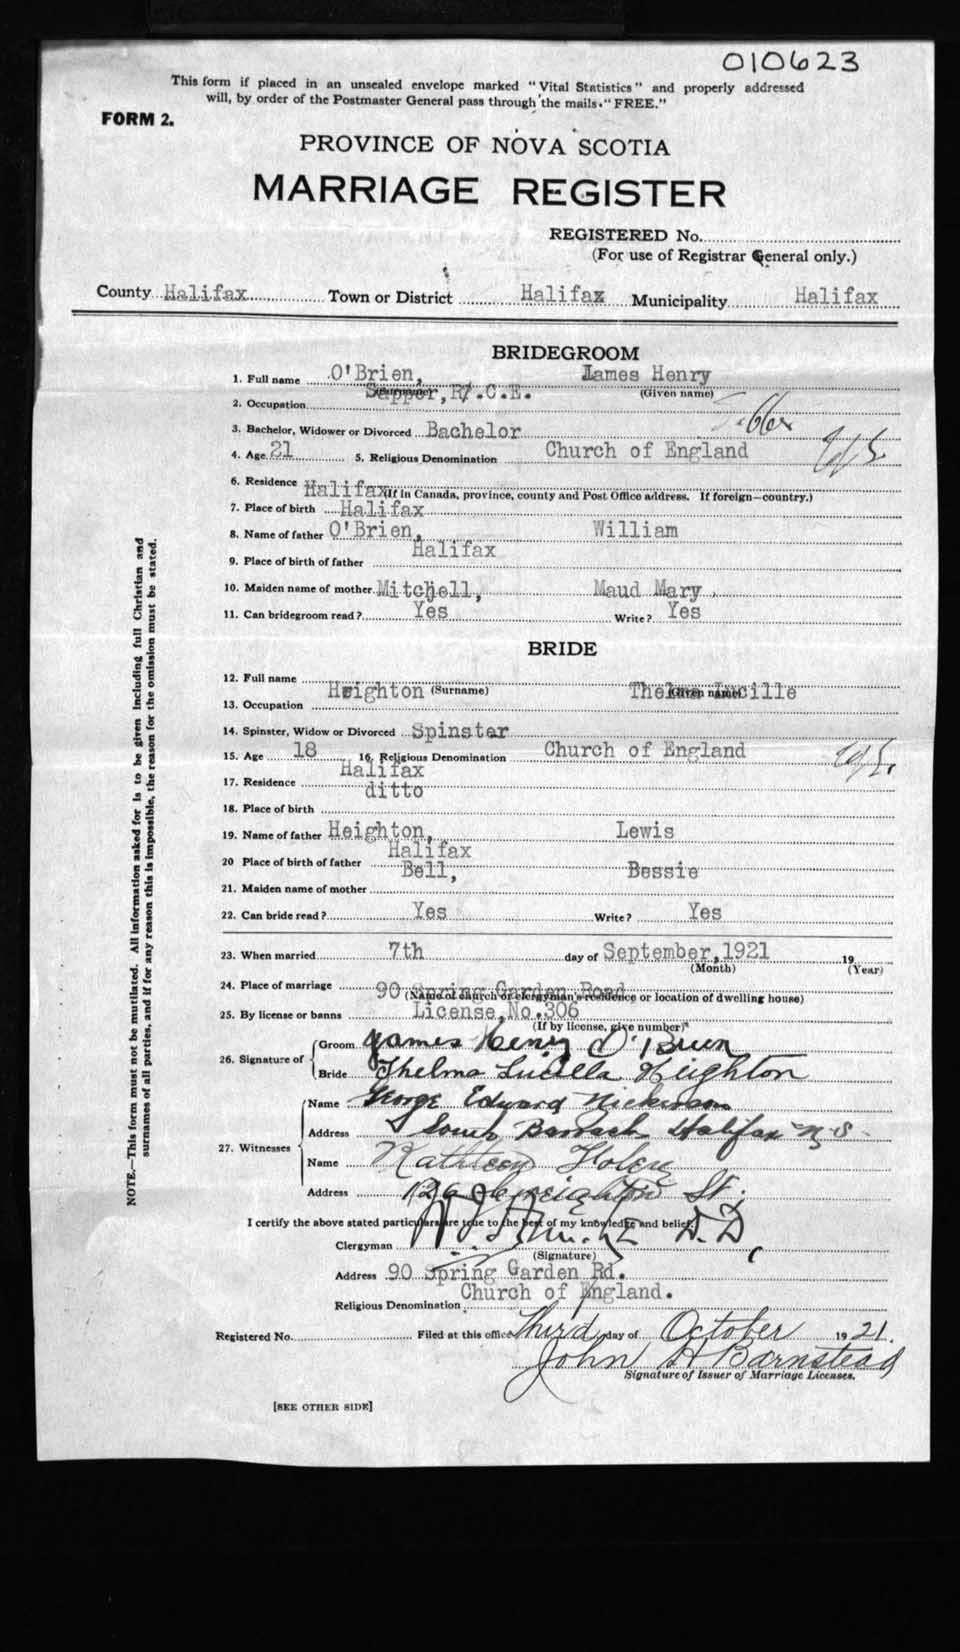 010623
This form if placed in an unsealed envelope marked "Vital Statistics" and properly addressed
will, by order of the Postmaster General pass through the mails. "FREE."
FORM 2.
PROVINCE OF NOVA SCOTIA
MARRIAGE REGISTER
REGISTERED No.
(For use of Registrar General only.)
County Halifax Town or District Halifax Municipality Halifax
BRIDEGROOM
1. Full name O'Brien, James Henry
(Surname) (Given name)
2. Occupation Sapper, R.C.E.
3. Bachelor, Widower or Divorced Bachelor
4. Age 21 5. Religious Denomination Church of England
6. Residence Halifax (If in Canada, province, county and Post Office address. If foreign—country.)
7. Place of birth Halifax
8. Name of father O'Brien, William
9. Place of birth of father Halifax
10. Maiden name of mother Mitchell, Maud Mary
11. Can bridegroom read? Yes Write? Yes
BRIDE
12. Full name Heighton Thelma Lucille
(Surname) (Given name)
13. Occupation
14. Spinster, Widow or Divorced Spinster
15. Age 18 16. Religious Denomination Church of England
17. Residence Halifax
18. Place of birth ditto
19. Name of father Heighton, Lewis
20 Place of birth of father Halifax
21. Maiden name of mother Bell, Bessie
22. Can bride read? Yes Write? Yes
23. When married 7th day of September, 1921 19
(Month) (Year)
24. Place of marriage 90 Spring Garden Road
(Name of church or clergyman's residence or location of dwelling house)
25. By license or banns License, No. 306
(If by license, give number)
26. Signature of Groom James Henry O'Brien
Bride Thelma Lucilla Heighton
27. Witnesses Name George Edward Nickerson
Address South Barrack Halifax N-S-
Name Kathleen
Address 126 Creighton St.
I certify the above stated particulars are true to the best of my knowledge and belief.
Clergyman D.D.
(Signature)
Address 90 Spring Garden Rd.
Religious Denomination Church of England.
Registered No. Filed at this office Third day of October 1921.
John H Barnstead
Signature of Issuer of Marriage Licenses.
[SEE OTHER SIDE]
NOTE.—This form must not be mutilated. All information asked for is to be given including full Christian and
surnames of all parties, and if for any reason this is impossible, the reason for the omission must be stated.